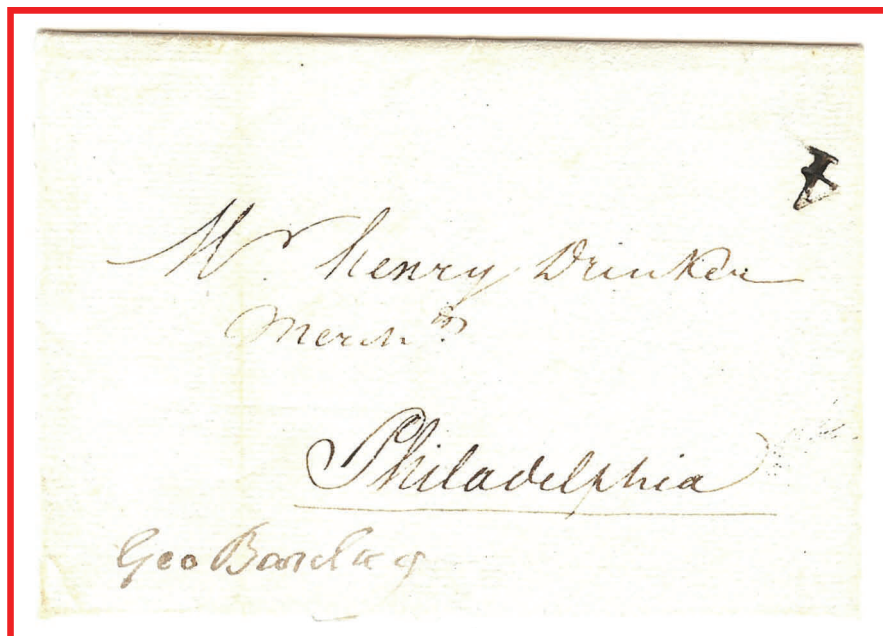 Mr Henry Drinker
Mercht.
Philadelphia
Geo